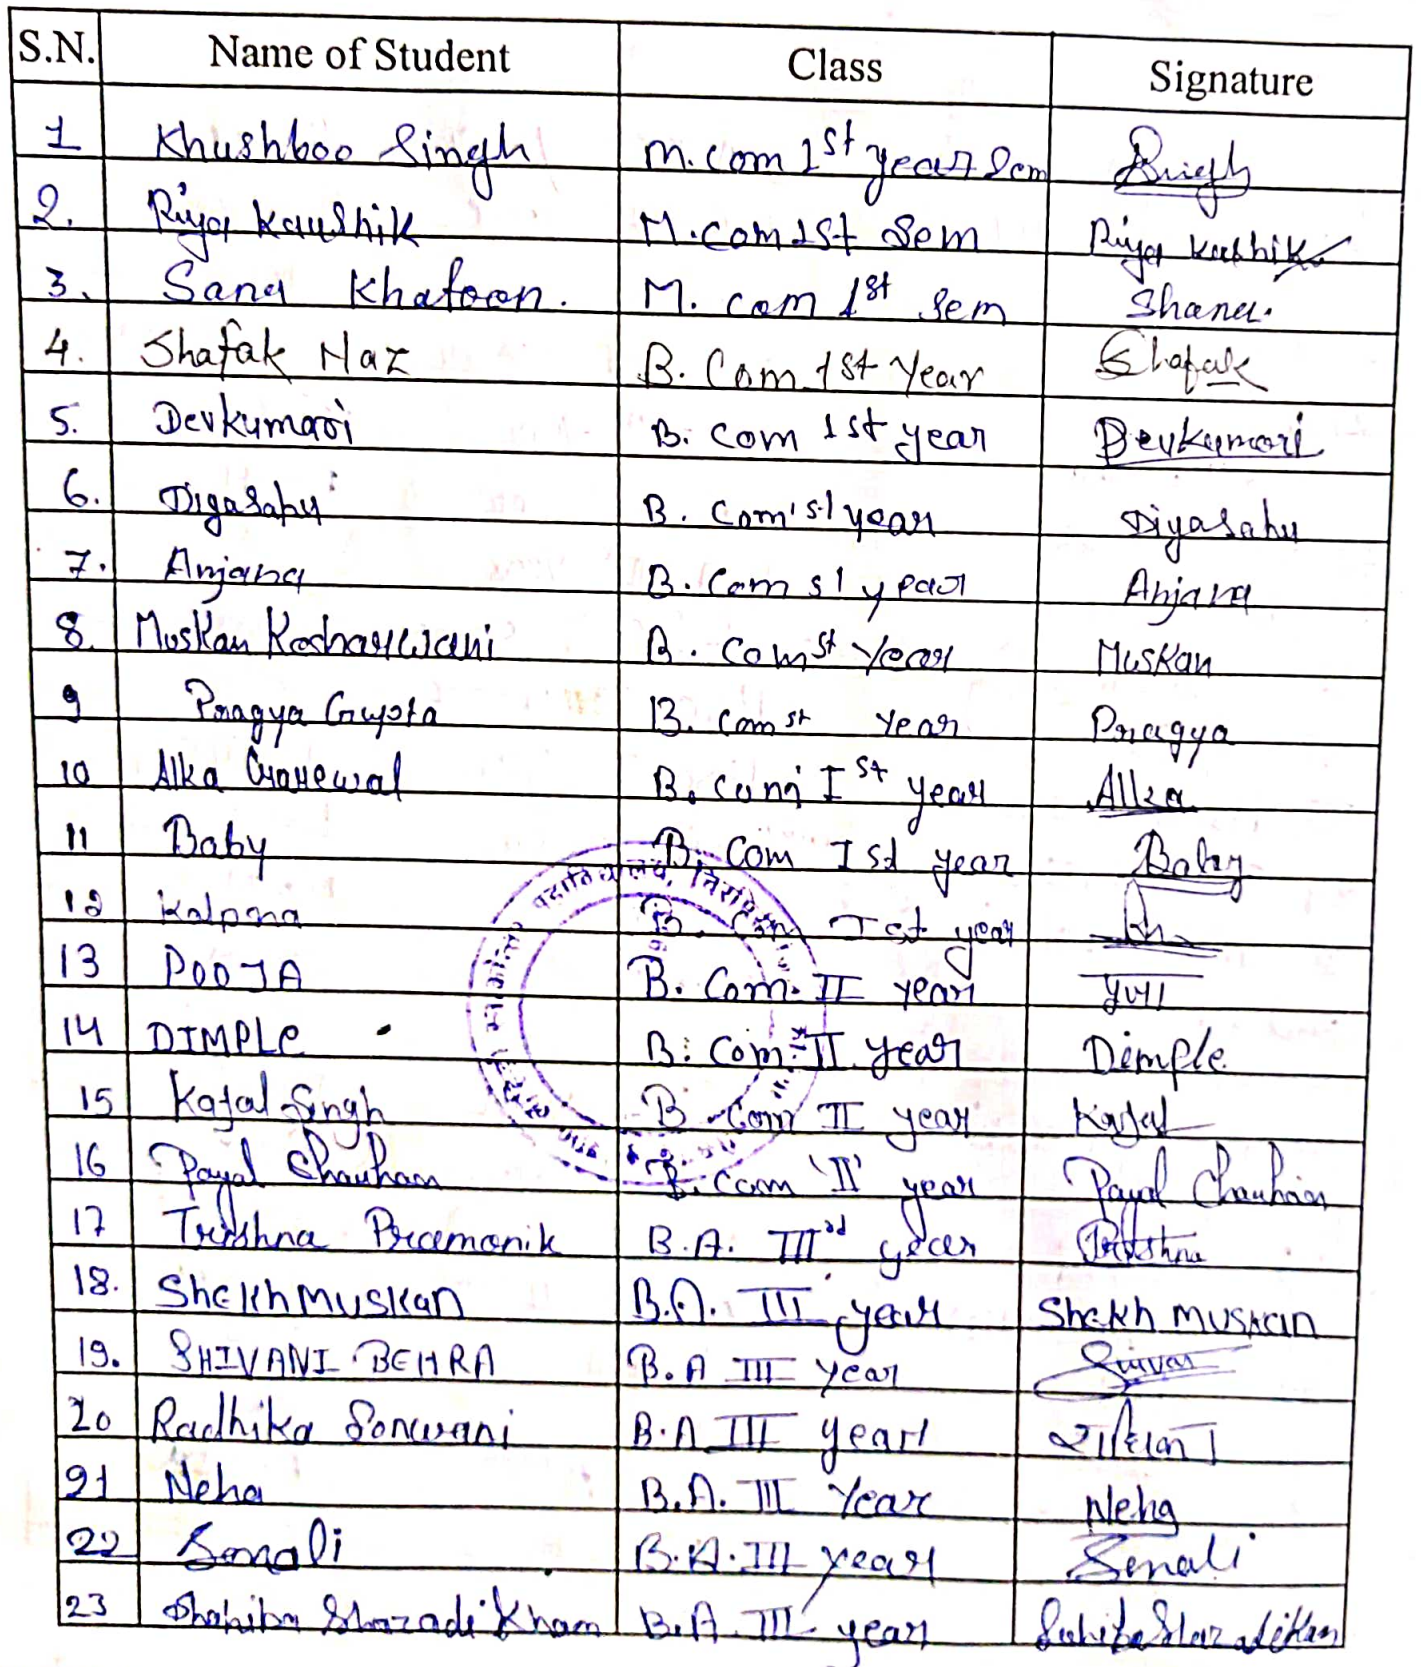 S.N. Name of Student Class Signature
1 Khushboo Singh M.com 1st year Sem Singh
2. Riya Kaushik M.com 1st Sem Riya Kashik
3. Sana Khatoon. M. com 1st Sem Shana.
4. Shafak Naz B. Com 1st Year Shafak
5. Devkumari B. com 1st year Devkumari
6. Diyasahu B. com 1st year Diyasahu
7. Anjana B. Com st year Anjana
8. Muskan Kesharwani B. Com st Year Muskan
9 Pragya Gupta B. com st year Pragya
10 Alka Garewal B. com I st year Alka
11 Baby B. Com I st year Baby
12 Kalpna B. Com I st year
13 POOJA B. Com. II year पूजा
14 DIMPLE B. Com. II year Dimple
15 Kajal Singh B. Com II year Kajal
16 Payal Chauhan B. Com 'II' year Payal Chauhan
17 Trishna Pramanik B.A. III rd year Trishna
18. Shekh Muskan B.A. III year Shekh Muskan
19. SHIVANI BEHRA B.A III year
20 Radhika Sonwani B.A III year राधिका
21 Neha B.A. III Year Neha
22 Sonali B.A. III year Sonali
23 Shahiba Shazadi Khan B.A. III year